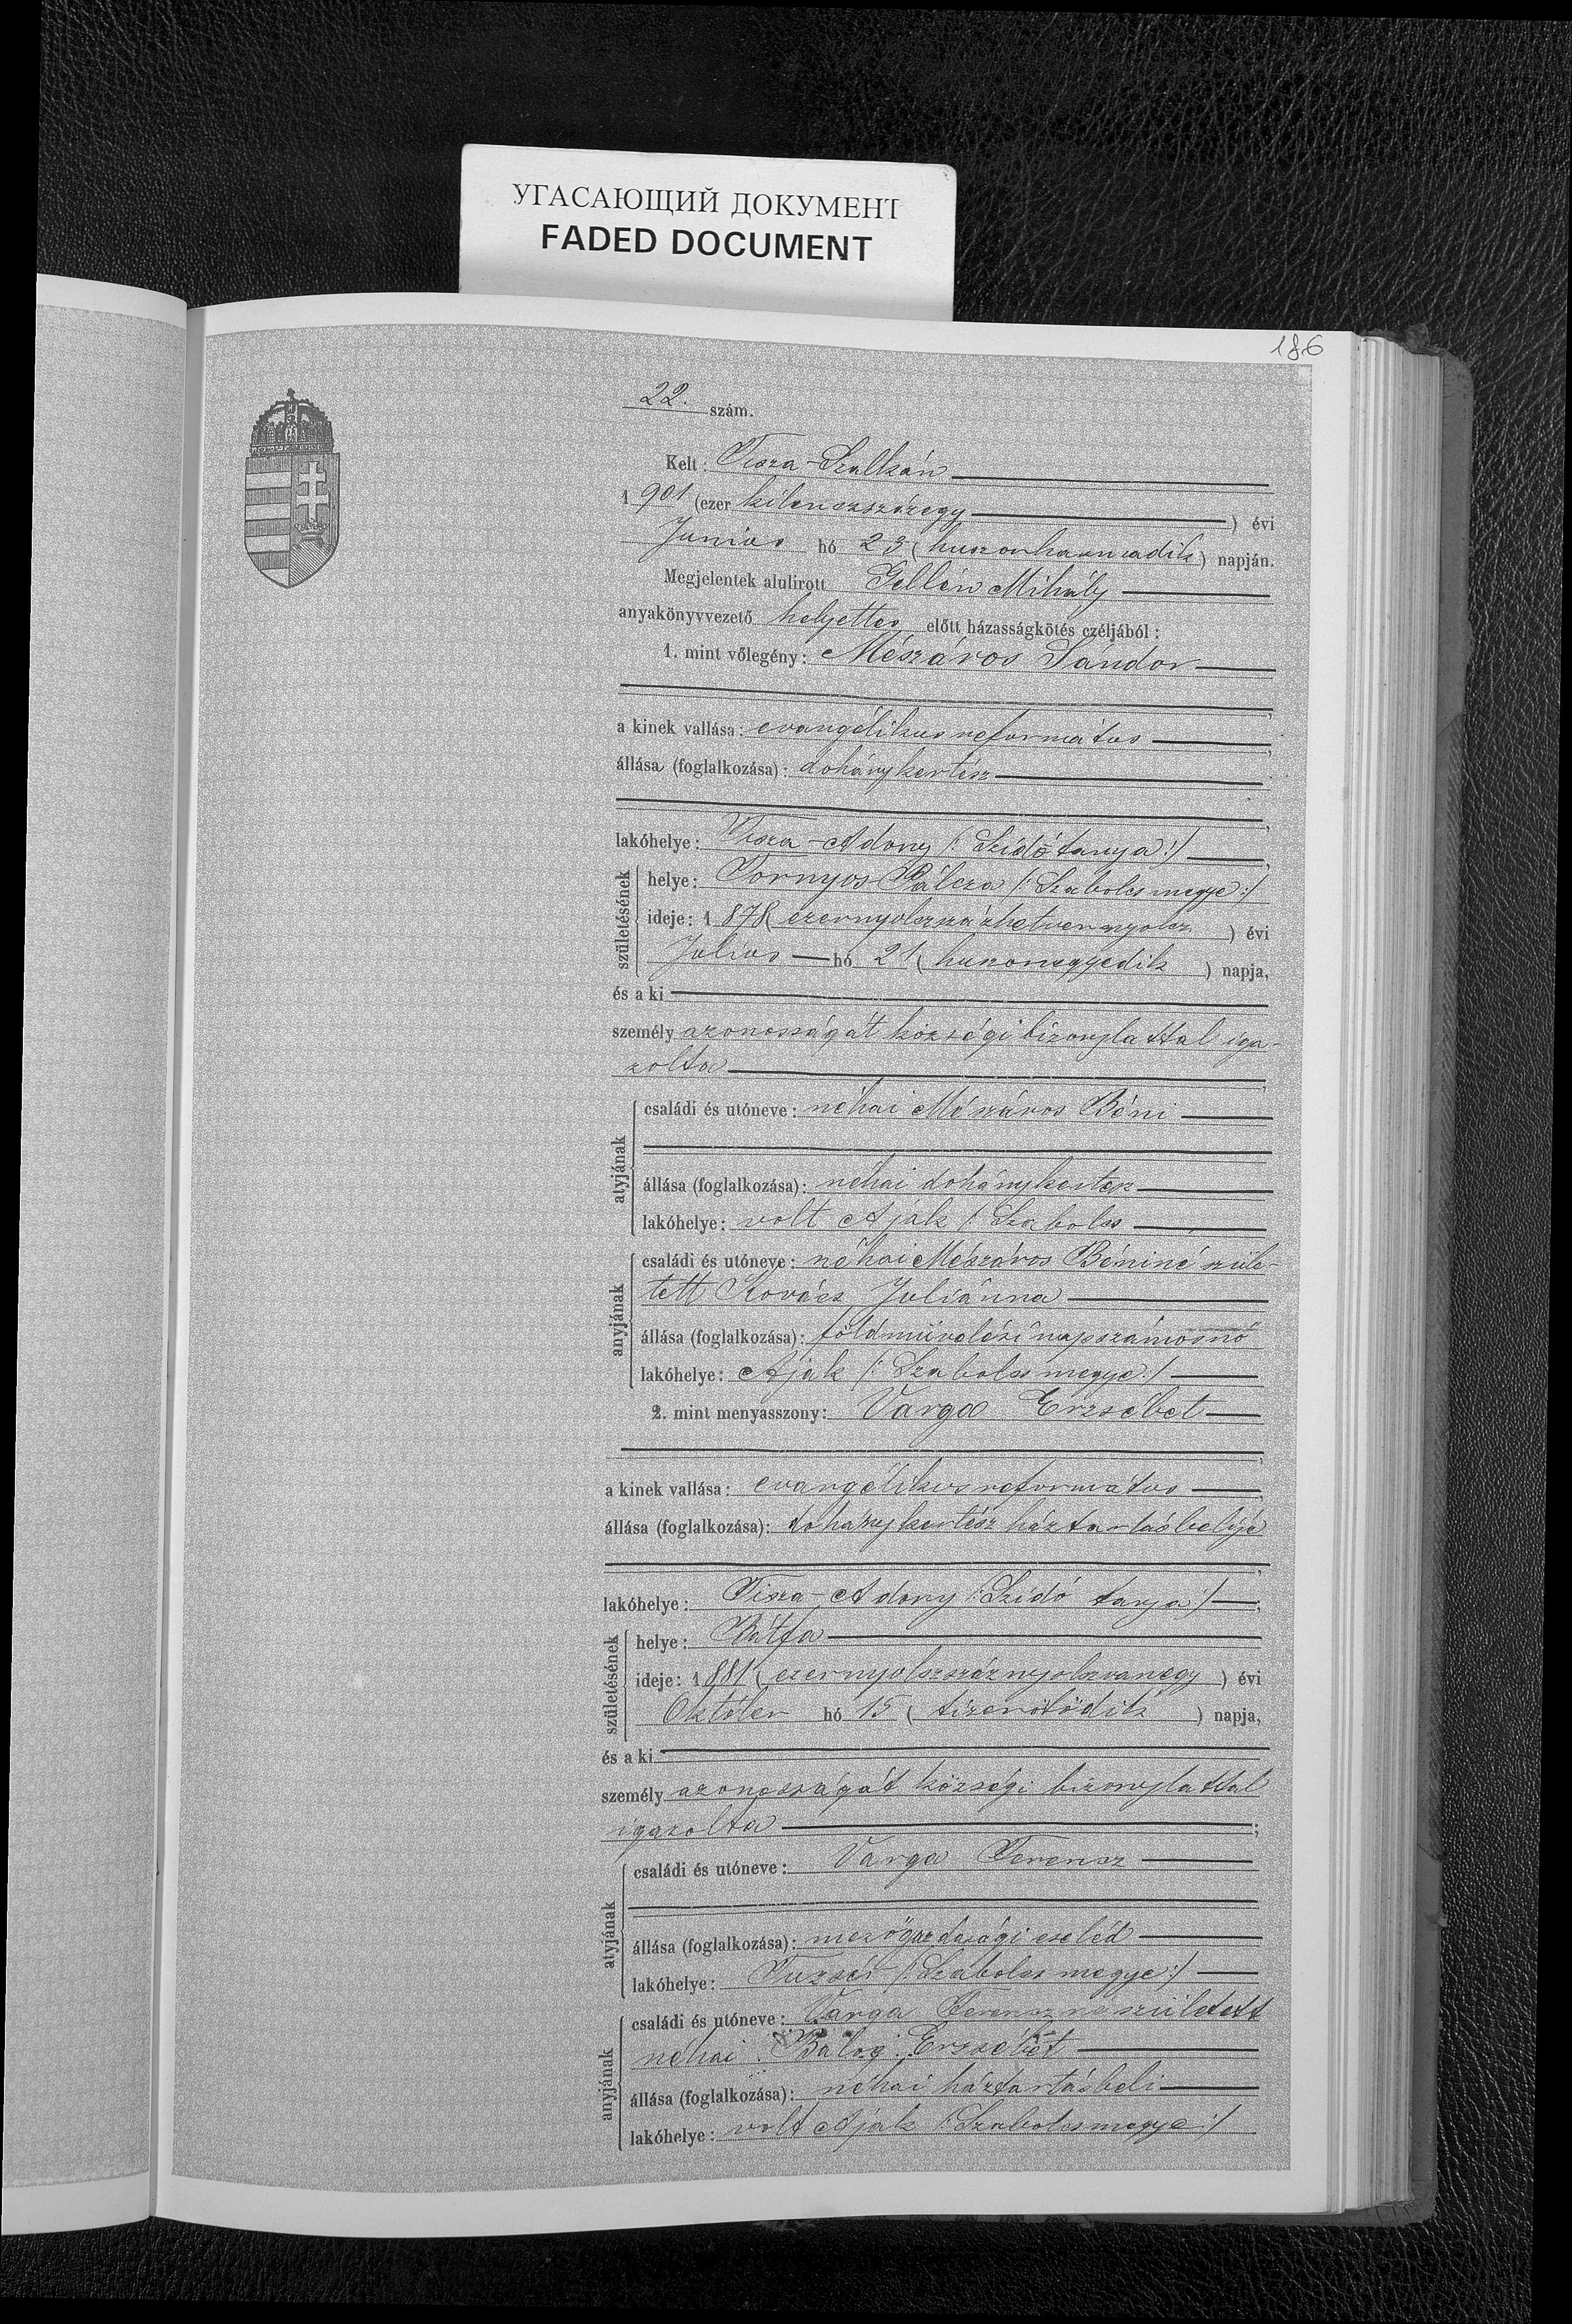 УГАСАЮЩИЙ ДОКУМЕНТ
FADED DOCUMENT
186
22. szám.
Kelt: Tisza-Szalkán
1901 (ezer kilenczszázegy) évi
Junius hó 23 (huszonharmadik) napján.
Megjelentek alulirott Gellén Mihály
anyakönyvvezető helyettes előtt házasságkötés czéljából:
1. mint vőlegény: Mészáros Sándor
a kinek vallása: evangélikus református
állása (foglalkozása): dohánykertész
lakóhelye: Tisza-Adony /: Szídó tanya :/
születésének
helye: Tornyos-Pálcza /: Szabolcs megye :/
ideje: 1878 (ezernyolczszázhetvennyolcz) évi
Julius hó 21 (huszonegyedik) napja,
és a ki
személyazonosságát községi bizonylattal iga-
zolta
atyjának
családi és utóneve: néhai Mészáros Béni
állása (foglalkozása): néhai dohánykertész
lakóhelye: volt Ajak /: Szabolcs
anyjának
családi és utóneve: néhai Mészáros Béniné szüle-
tett Kovács Juliánna
állása (foglalkozása): földmüvelési napszámosnő
lakóhelye: Ajak /: Szabolcs megye :/
2. mint menyasszony: Varga Erzsébet
a kinek vallása: evangélikus református
állása (foglalkozása): dohánykertész háztartásbelije
lakóhelye: Tisza-Adony /: Szídó tanya :/
születésének
helye: Bátfa
ideje: 1881 (ezernyolczszáznyolczvanegy) évi
Október hó 15 (tizenötödik) napja,
és a ki
személyazonosságát községi bizonylattal
igazolta;
atyjának
családi és utóneve: Varga Ferencz
állása (foglalkozása): mezőgazdasági cseléd
lakóhelye: Tuzsér /: Szabolcs megye :/
anyjának
családi és utóneve: Varga Ferenczné született
néhai Balog Erzsébet
állása (foglalkozása): néhai háztartásbeli
lakóhelye: volt Ajak /: Szabolcsmegye :/